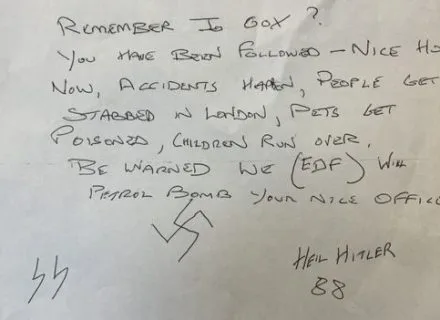 REMEMBER JO COX ?
YOU HAVE BEEN FOLLOWED - NICE HO
NOW, ACCIDENTS HAPPEN, PEOPLE GET
STABBED IN LONDON, PETS GET
POISONED, CHILDREN RUN OVER.
BE WARNED WE (EDF) WILL
PETROL BOMB YOUR NICE OFFICE
HEIL HITLER
88